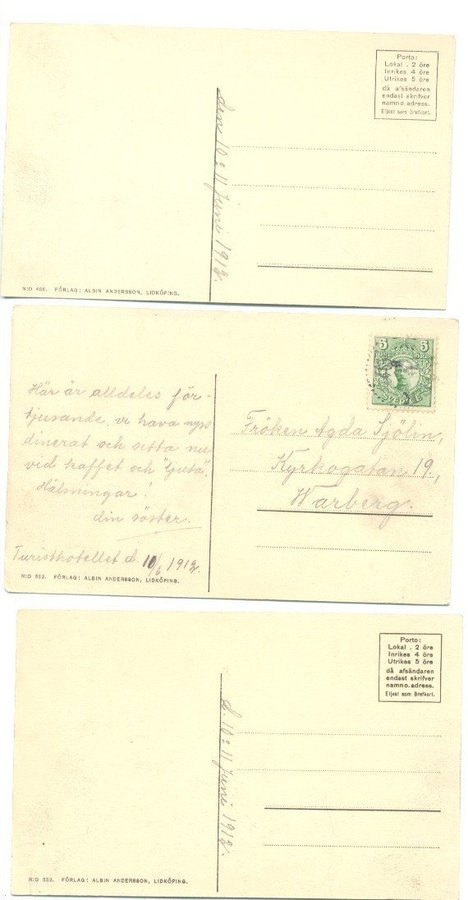 Porto:
Lokal . 2 öre
Inrikes 4 öre
Utrikes 5 öre
då afsändaren
endast skrifver
namn o. adress.
Eljest som Brefkort.
den 10 o 11 Juni 1912.
N:O 488. FÖRLAG: ALBIN ANDERSSON, LIDKÖPING.
5 5
Här är alldeles för-
tjusande, vi hava nyss
dinerat och sitta nu
vid kaffet och
Hälsningar!
din söster.
Turisthotellet d. 10/6 1912.
Fröken Agda Sjölin,
Kyrkogatan 19,
Warberg.
N:O 532. FÖRLAG: ALBIN ANDERSSON, LIDKÖPING.
Porto:
Lokal . 2 öre
Inrikes 4 öre
Utrikes 5 öre
då afsändaren
endast skrifver
namn o. adress.
Eljest som Brefkort.
d. 10 o 11 Juni 1912.
N:O 532. FÖRLAG: ALBIN ANDERSSON, LIDKÖPING.